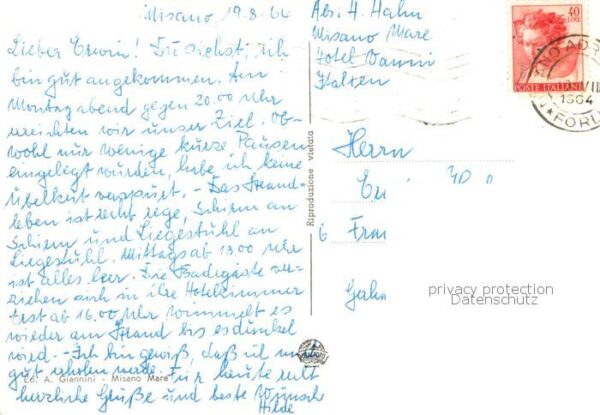 Misano 19.8.64
Lieber Erwin! Du siehst, ich
bin gut angekommen. Am
Montagabend gegen 20.00 Uhr
erreichten wir unser Ziel. Ob-
wohl nur wenige kurze Pausen
eingelegt wurden, habe ich keine
Übelkeit verspürt. - Das Strand-
leben ist recht rege, Schirm an
Schirm und Liegestuhl an
Liegestuhl. Mittags ab 13.00 Uhr
ist alles leer. Die Badegäste ver-
ziehen sich in ihre Hotelzimmer
erst ab 16.00 Uhr wimmelt es
wieder am Strand bis es dunkel
wird. - Ich bin gewiß, daß ich mich
gut erholen werde. Für heute recht
herzliche Grüße und beste Wünsche
Hilde
Ed. A. Giannini - Misano Mare
Riproduzione vietata
Abs. H. Hahn
Misano Mare
Hotel Vanni
Italien
40
LIRE
POSTE ITALIANE
1964
FORLI
Herrn
6
privacy protection
Datenschutz